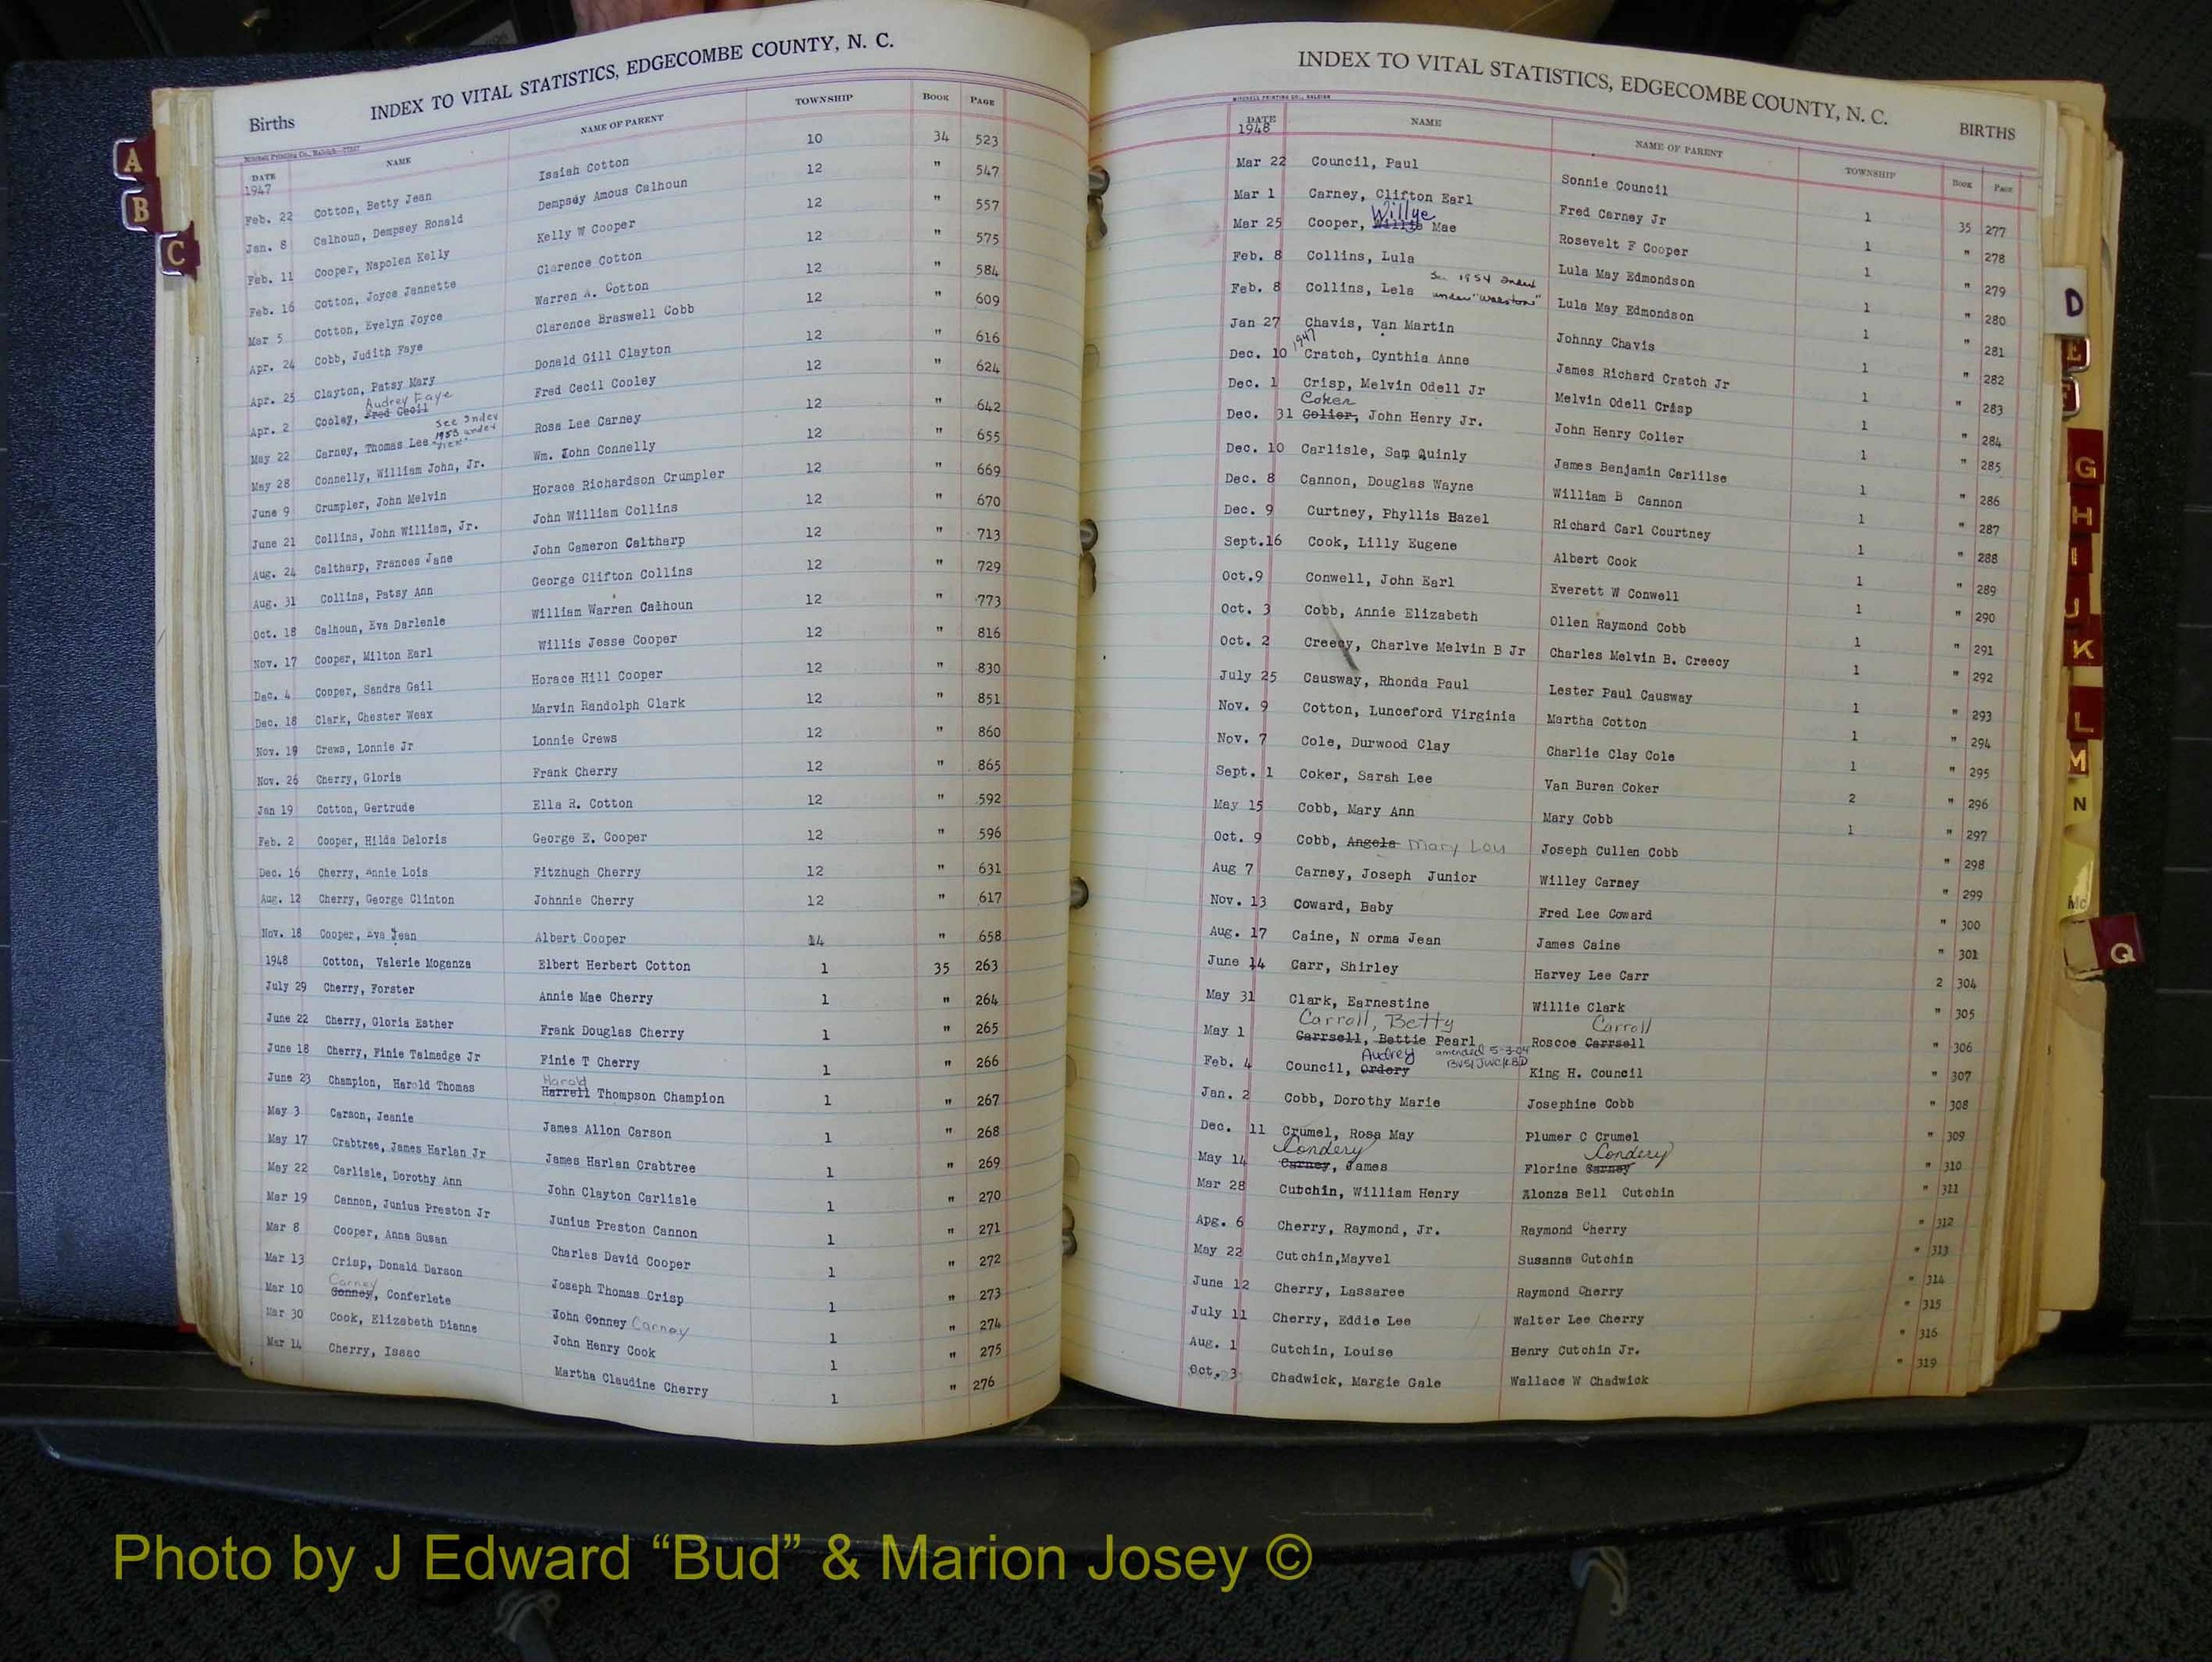 INDEX TO VITAL STATISTICS, EDGECOMBE COUNTY, N. C.
Births
Mitchell Printing Co., Raleigh
DATE NAME NAME OF PARENT TOWNSHIP BOOK PAGE
1947
Feb. 22 Cotton, Betty Jean Isaiah Cotton 10 34 523
Jan. 8 Calhoun, Dempsey Ronald Dempsey Amous Calhoun 12 " 547
Feb. 11 Cooper, Napolen Kelly Kelly W Cooper 12 " 557
Feb. 16 Cotton, Joyce Jannette Clarence Cotton 12 " 575
Mar 5 Cotton, Evelyn Joyce Warren A. Cotton 12 " 584
Apr. 24 Cobb, Judith Faye Clarence Braswell Cobb 12 " 609
Apr. 25 Clayton, Patsy Mary Donald Gill Clayton 12 " 616
Audrey Faye
Apr. 2 Cooley, Fred Cecil Fred Cecil Cooley 12 " 624
See Index 1953 under
May 22 Carney, Thomas Lee Rosa Lee Carney 12 " 642
May 28 Connelly, William John, Jr. Wm. John Connelly 12 " 655
June 9 Crumpler, John Melvin Horace Richardson Crumpler 12 " 669
June 21 Collins, John William, Jr. John William Collins 12 " 670
Aug. 24 Caltharp, Frances Jane John Cameron Caltharp 12 " 713
Aug. 31 Collins, Patsy Ann George Clifton Collins 12 " 729
Oct. 18 Calhoun, Eva Darlenle William Warren Calhoun 12 " 773
Nov. 17 Cooper, Milton Earl Willis Jesse Cooper 12 " 816
Dec. 4 Cooper, Sandra Gail Horace Hill Cooper 12 " 830
Dec. 18 Clark, Chester Weax Marvin Randolph Clark 12 " 851
Nov. 19 Crews, Lonnie Jr Lonnie Crews 12 " 860
Nov. 26 Cherry, Gloria Frank Cherry 12 " 865
Jan 19 Cotton, Gertrude Ella R. Cotton 12 " 592
Feb. 2 Cooper, Hilda Deloris George E. Cooper 12 " 596
Dec. 16 Cherry, Annie Lois Fitzhugh Cherry 12 " 631
Aug. 12 Cherry, George Clinton Johnnie Cherry 12 " 617
Nov. 18 Cooper, Eva Jean Albert Cooper 14 " 658
1948 Cotton, Valerie Moganza Elbert Herbert Cotton 1 35 263
July 29 Cherry, Forster Annie Mae Cherry 1 " 264
June 22 Cherry, Gloria Esther Frank Douglas Cherry 1 " 265
June 18 Cherry, Finie Talmadge Jr Finie T Cherry 1 " 266
Harold
June 23 Champion, Harold Thomas Harrell Thompson Champion 1 " 267
May 3 Carson, Jeanie James Allon Carson 1 " 268
May 17 Crabtree, James Harlan Jr James Harlan Crabtree 1 " 269
May 22 Carlisle, Dorothy Ann John Clayton Carlisle 1 " 270
Mar 19 Cannon, Junius Preston Jr Junius Preston Cannon 1 " 271
Mar 8 Cooper, Anna Susan Charles David Cooper 1 " 272
Mar 13 Crisp, Donald Darson Joseph Thomas Crisp 1 " 273
Carney
Mar 10 Conney, Conferlete John Conney Carney 1 " 274
Mar 30 Cook, Elizabeth Dianne John Henry Cook 1 " 275
Mar 14 Cherry, Isaac Martha Claudine Cherry 1 " 276
INDEX TO VITAL STATISTICS, EDGECOMBE COUNTY, N. C.
BIRTHS
MITCHELL PRINTING CO., RALEIGH
DATE NAME NAME OF PARENT TOWNSHIP BOOK PAGE
1948
Mar 22 Council, Paul Sonnie Council 1 35 277
Mar 1 Carney, Clifton Earl Fred Carney Jr 1 " 278
Willye
Mar 25 Cooper, Willie Mae Rosevelt F Cooper 1 " 279
Feb. 8 Collins, Lula Lula May Edmondson 1 " 280
See 1954 Index
under "Walston"
Feb. 8 Collins, Lela Lula May Edmondson 1 " 281
Jan 27 Chavis, Van Martin Johnny Chavis 1 " 282
1947
Dec. 10 Cratch, Cynthia Anne James Richard Cratch Jr 1 " 283
Dec. 1 Crisp, Melvin Odell Jr Melvin Odell Crisp 1 " 284
Coker
Dec. 31 Colier, John Henry Jr. John Henry Colier 1 " 285
Dec. 10 Carlisle, Sam Quinly James Benjamin Carlilse 1 " 286
Dec. 8 Cannon, Douglas Wayne William B Cannon 1 " 287
Dec. 9 Curtney, Phyllis Hazel Richard Carl Courtney 1 " 288
Sept.16 Cook, Lilly Eugene Albert Cook 1 " 289
Oct.9 Conwell, John Earl Everett W Conwell 1 " 290
Oct. 3 Cobb, Annie Elizabeth Ollen Raymond Cobb 1 " 291
Oct. 2 Creecy, Charlve Melvin B Jr Charles Melvin B. Creecy 1 " 292
July 25 Causway, Rhonda Paul Lester Paul Causway 1 " 293
Nov. 9 Cotton, Lunceford Virginia Martha Cotton 1 " 294
Nov. 7 Cole, Durwood Clay Charlie Clay Cole 1 " 295
Sept. 1 Coker, Sarah Lee Van Buren Coker 2 " 296
May 15 Cobb, Mary Ann Mary Cobb 1 " 297
Oct. 9 Cobb, Angela Mary Lou Joseph Cullen Cobb " 298
Aug 7 Carney, Joseph Junior Willey Carney " 299
Nov. 13 Coward, Baby Fred Lee Coward " 300
Aug. 17 Caine, N orma Jean James Caine " 301
June 14 Carr, Shirley Harvey Lee Carr 2 304
May 31 Clark, Earnestine Willie Clark " 305
Carroll, Betty Carroll
May 1 Carrsell, Bettie Pearl Roscoe Carrsell " 306
Audrey amended 5-3-04
Feb. 4 Council, Ordery King H. Council " 307
Jan. 2 Cobb, Dorothy Marie Josephine Cobb " 308
Dec. 11 Crumel, Rosa May Plumer C Crumel " 309
Condery Condery
May 14 Carney, James Florine Carney " 310
Mar 28 Cutchin, William Henry Alonza Bell Cutchin " 311
Apg. 6 Cherry, Raymond, Jr. Raymond Cherry " 312
May 22 Cutchin,Mayvel Susanna Cutchin " 313
June 12 Cherry, Lassaree Raymond Cherry " 314
July 11 Cherry, Eddie Lee Walter Lee Cherry " 315
Aug. 1 Cutchin, Louise Henry Cutchin Jr. " 316
Oct. 3 Chadwick, Margie Gale Wallace W Chadwick " 319
A
B
C
D
E
F
G
H
I
J
K
L
M
N
Mc
Q
Photo by J Edward “Bud” & Marion Josey ©